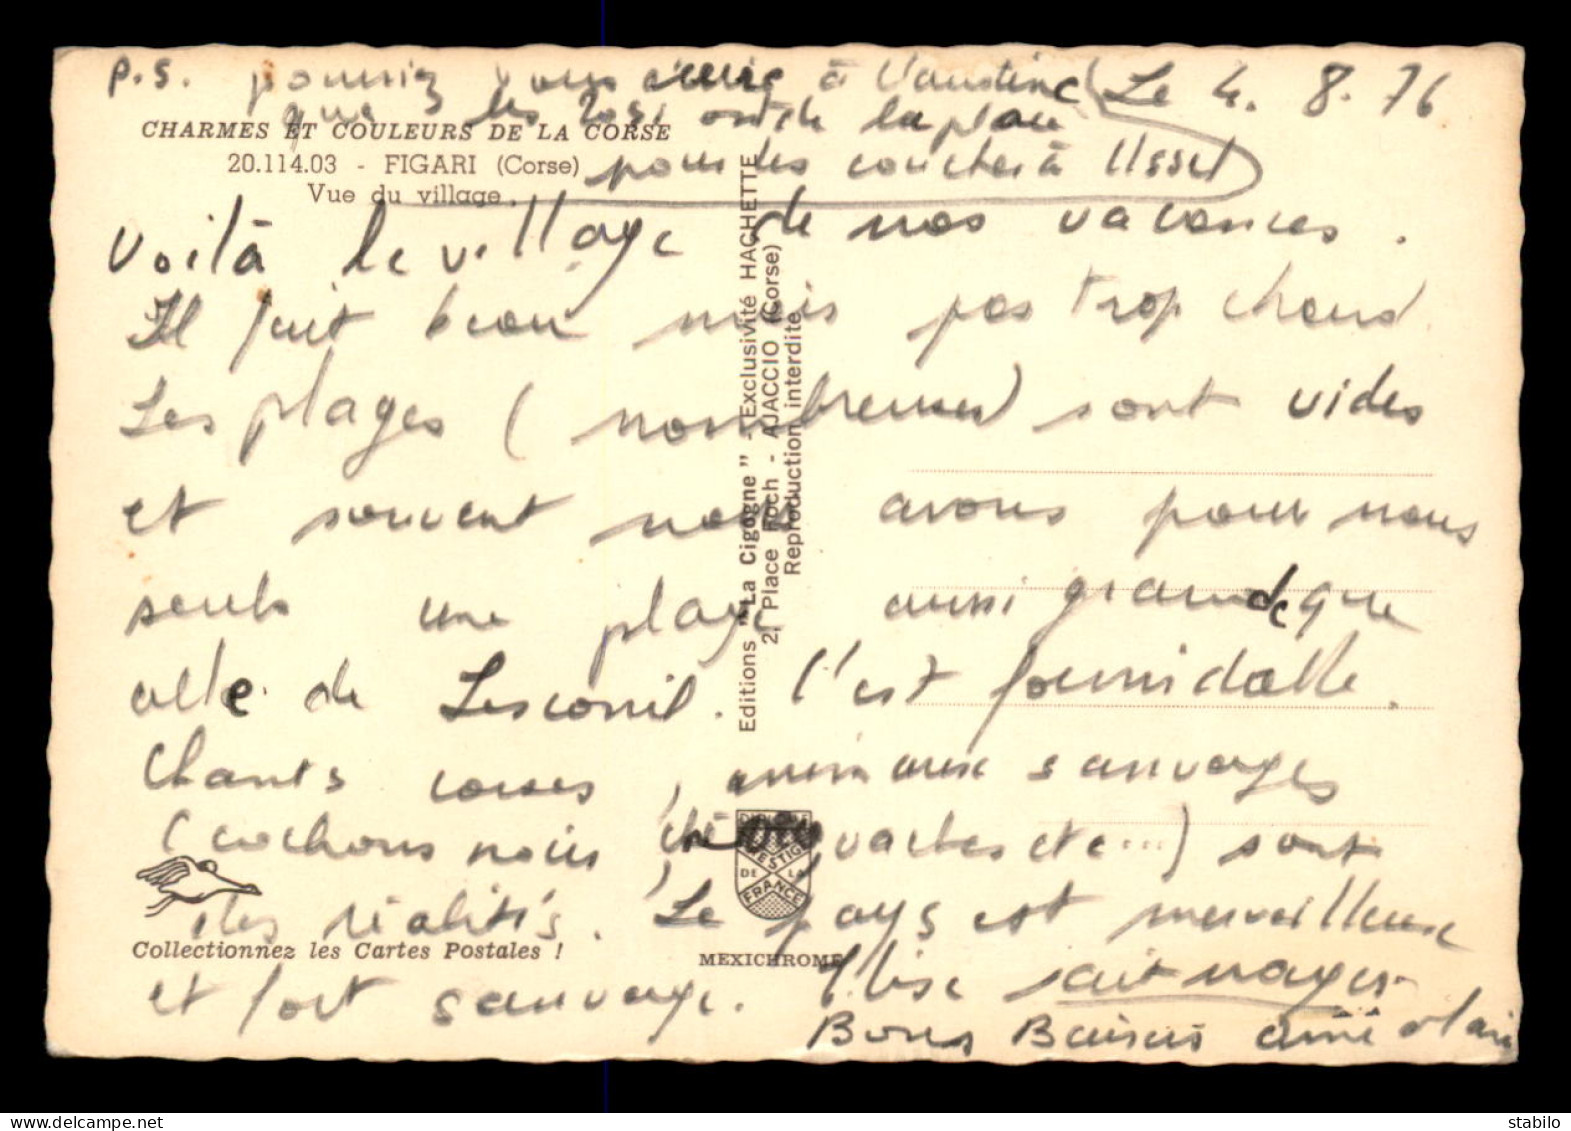 P.S. pourriez vous écrire à Le 4. 8. 76
que les ont de la place
CHARMES ET COULEURS DE LA CORSE
20.114.03 - FIGARI (Corse)
pour les coucher à Ussel
Vue du village
Voilà le village de nos vacances.
Il fait beau mais pas trop chaud.
Les plages (nombreuses) sont vides
et souvent nous avons pour nous
seuls une plage aussi grande que
celle de Lesconil. C'est formidable.
Chants corses, animaux sauvages
(cochons noirs, vaches etc...) sont
des réalités. Le pays est merveilleux
et fort sauvage. sait nager
Bons Baisers
Editions "La Cigogne" - Exclusivité HACHETTE
2, Place Foch - AJACCIO (Corse)
Reproduction interdite
DE LA
FRANCE
Collectionnez les Cartes Postales !
MEXICHROME
www.delcampe.net
stabilo